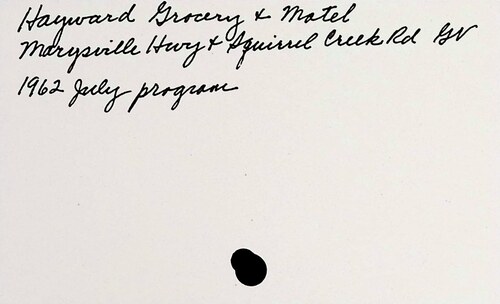 Hayward Grocery & Motel
Marysville Hwy & Squirrel Creek Rd GV
1962 July program